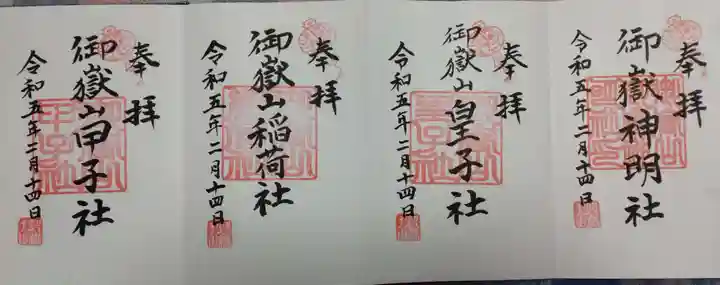 奉拝
御嶽神明社
令和五年二月十四日
奉拝
御嶽山皇子社
令和五年二月十四日
奉拝
御嶽山稲荷社
令和五年二月十四日
奉拝
御嶽山甲子社
令和五年二月十四日